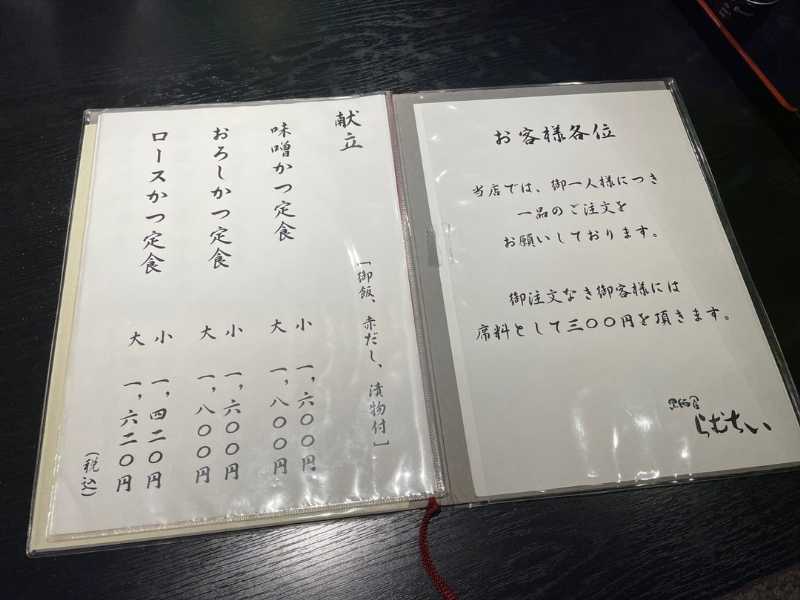 献立
「御飯、赤だし、漬物付」
味噌かつ定食
小 一、六〇〇円
大 一、八〇〇円
おろしかつ定食
小 一、六〇〇円
大 一、八〇〇円
ロースかつ定食
小 一、四二〇円
大 一、六二〇円
（税込）
お客様各位
当店では、御一人様につき
一品のご注文を
お願いしております。
御注文なき御客様には
席料として三〇〇円を頂きます。
らむちい